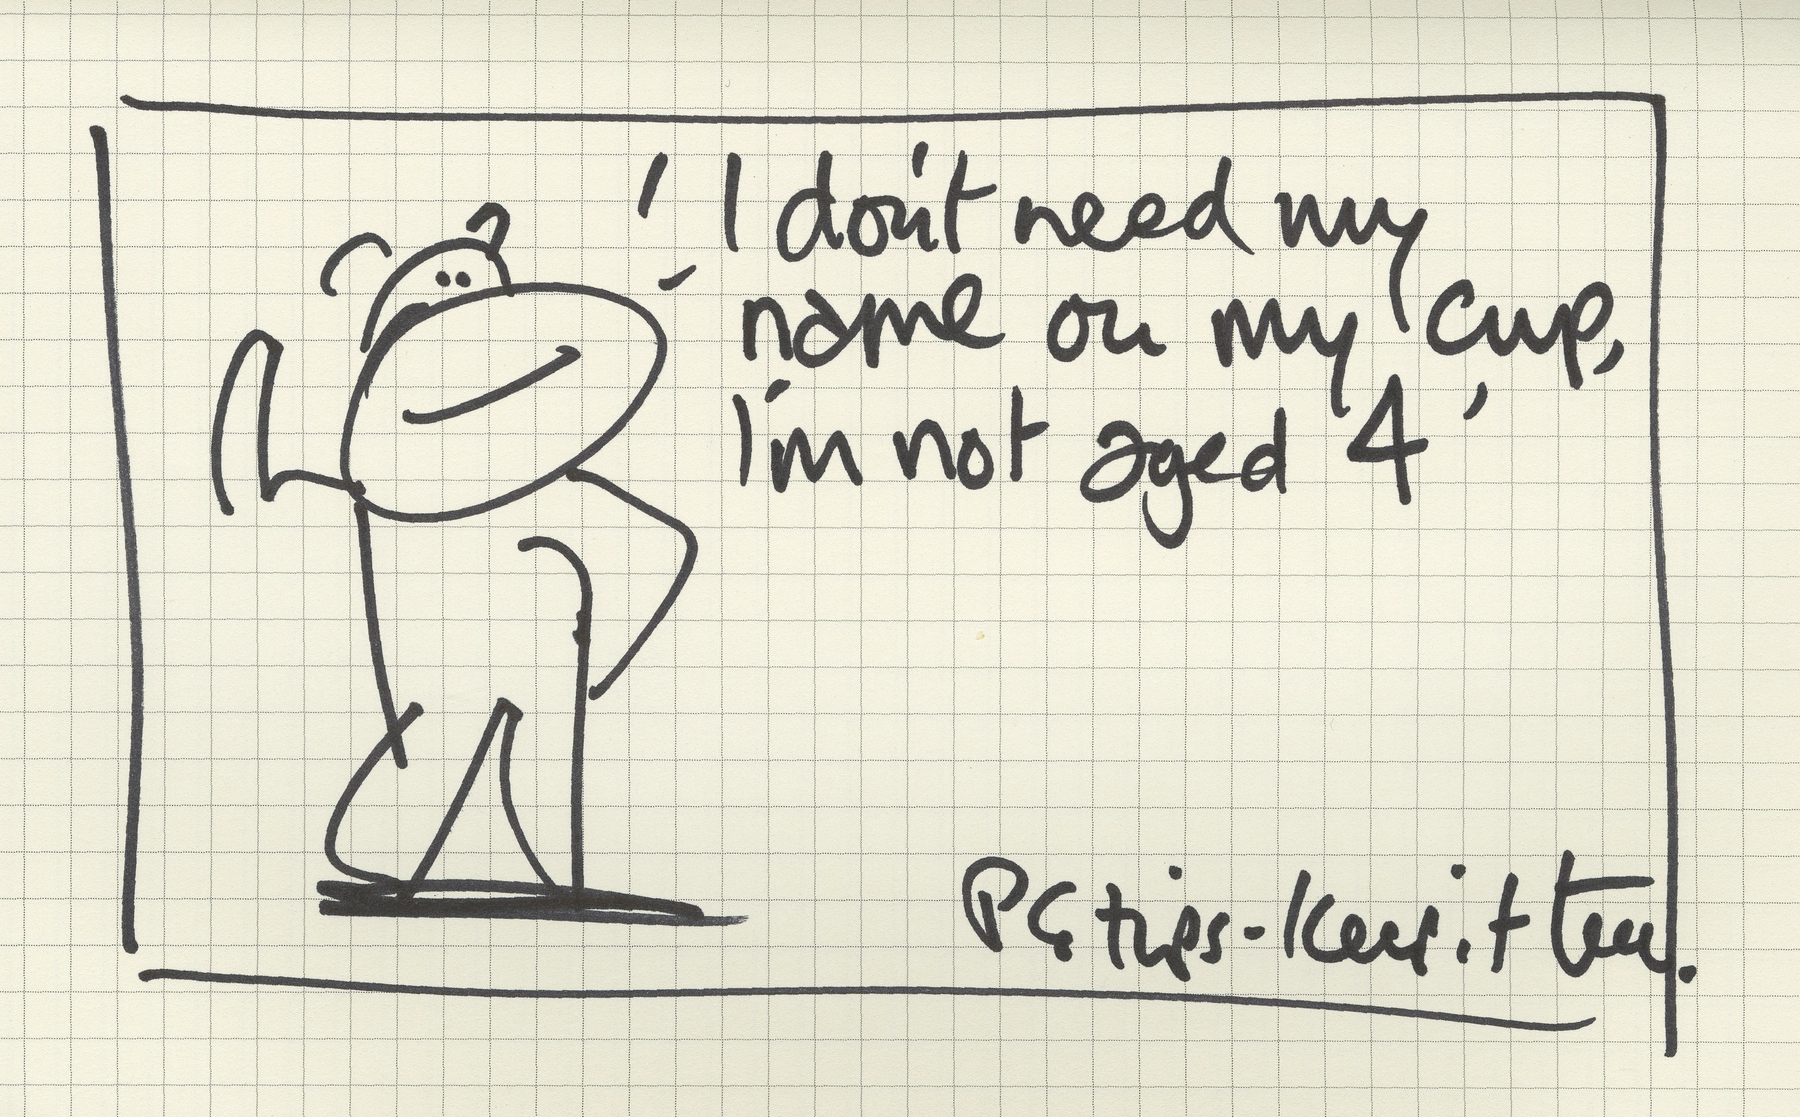 'I don't need my
name on my cup,
I'm not aged 4'
PG tips - Keep it tea.